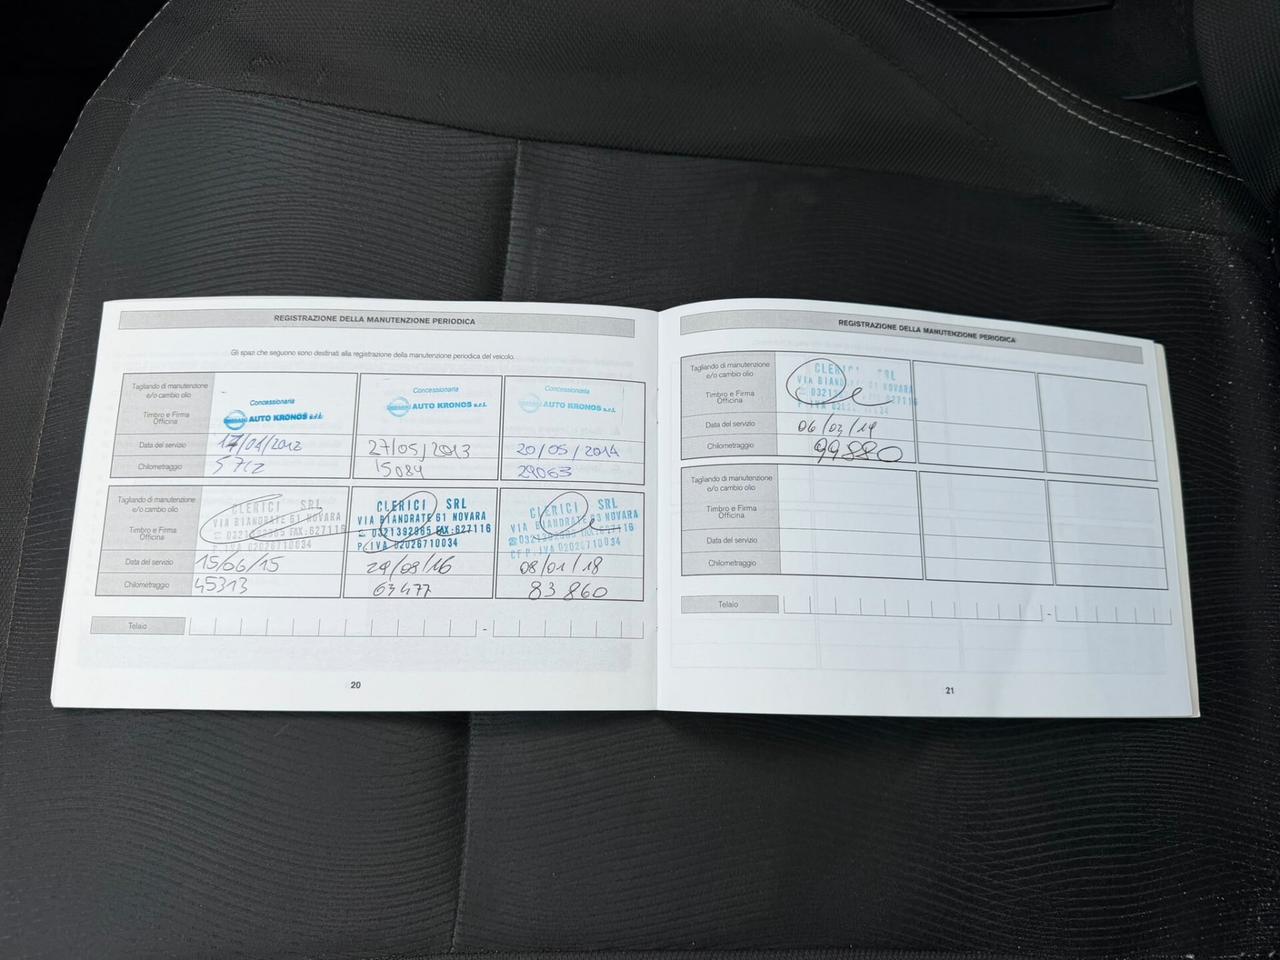 REGISTRAZIONE DELLA MANUTENZIONE PERIODICA
Gli spazi che seguono sono destinati alla registrazione della manutenzione periodica del veicolo.
Tagliando di manutenzione
e/o cambio olio
Timbro e Firma
Officina
Concessionaria
AUTO KRONOS s.r.l.
Concessionaria
AUTO KRONOS s.r.l.
Concessionaria
AUTO KRONOS s.r.l.
Data del servizio
27/05/2013
20/05/2014
Chilometraggio
15084
29063
Tagliando di manutenzione
e/o cambio olio
Timbro e Firma
Officina
CLERICI SRL
VIA BIANDRATE 61 NOVARA
0321392985 FAX:627116
P.IVA 02026710034
CLERICI SRL
VIA BIANDRATE 61 NOVARA
0321392985 FAX:627116
P.IVA 02026710034
CLERICI SRL
VIA BIANDRATE 63 NOVARA
CF P.IVA 02026710034
Data del servizio
15/06/15
08/01/18
Chilometraggio
45313
63477
83860
Telaio
-
20
REGISTRAZIONE DELLA MANUTENZIONE PERIODICA
Tagliando di manutenzione
e/o cambio olio
Timbro e Firma
Officina
CLERICI SRL
VIA BIANDRATE 61 NOVARA
Data del servizio
Chilometraggio
99880
Tagliando di manutenzione
e/o cambio olio
Timbro e Firma
Officina
Data del servizio
Chilometraggio
Telaio
-
21